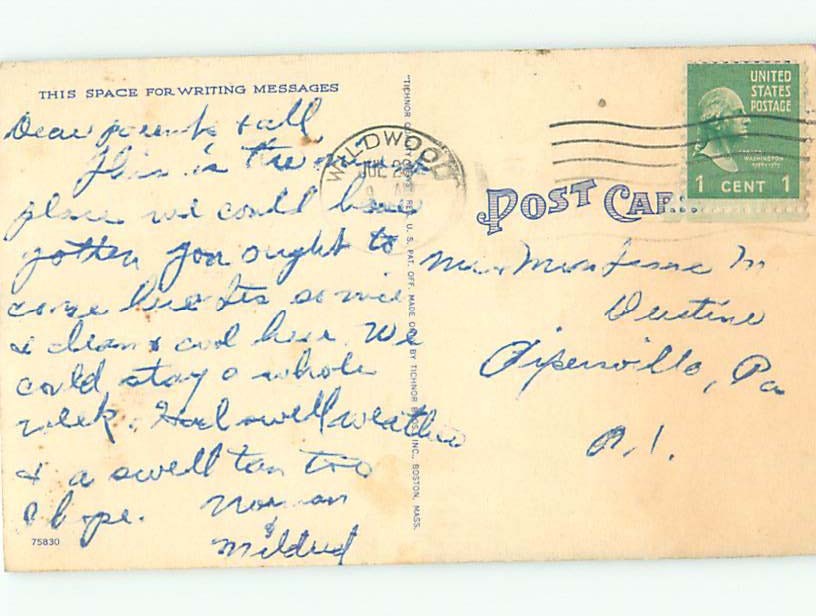 THIS SPACE FOR WRITING MESSAGES
Dear parents & all
This is the nicest
place we could have
gotten you ought to
come here its so nice
& clean & cool here. We
could stay a whole
week. Had swell weather
& a swell tan too
I hope. Norman
&
Mildred
75830
"TICHNOR REG. U. S. PAT. OFF. MADE ONLY BY TICHNOR BROS., INC., BOSTON, MASS.
WILDWOOD
JUL 28
UNITED
STATES
POSTAGE
WASHINGTON
1 CENT 1
POST CARD
Mr & Mrs
Pipersville, Pa
R.1.